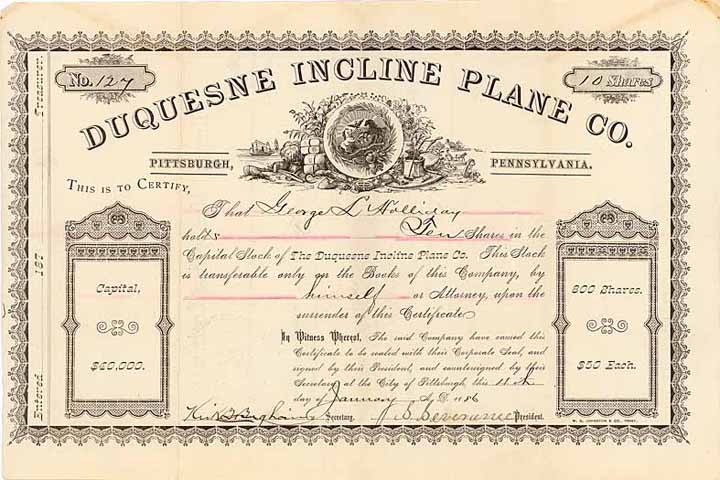 No. 127
10 Shares
DUQUESNE INCLINE PLANE CO.
PITTSBURGH, PENNSYLVANIA.
THIS IS TO CERTIFY,
That George L Holliday
holds Ten Shares in the
Capital Stock of The Duquesne Incline Plane Co. This Stock
is transferable only on the Books of this Company, by
himself or Attorney, upon the
surrender of this Certificate
In Witness Whereof, The said Company have caused this
Certificate to be sealed with their Corporate Seal, and
signed by their President, and countersigned by their
Secretary at the City of Pittsburgh, this 11th
day of January A.D. 1886
Secretary.
President.
Capital,
$40,000.
800 Shares.
$50 Each.
Entered 187 Treasurer.